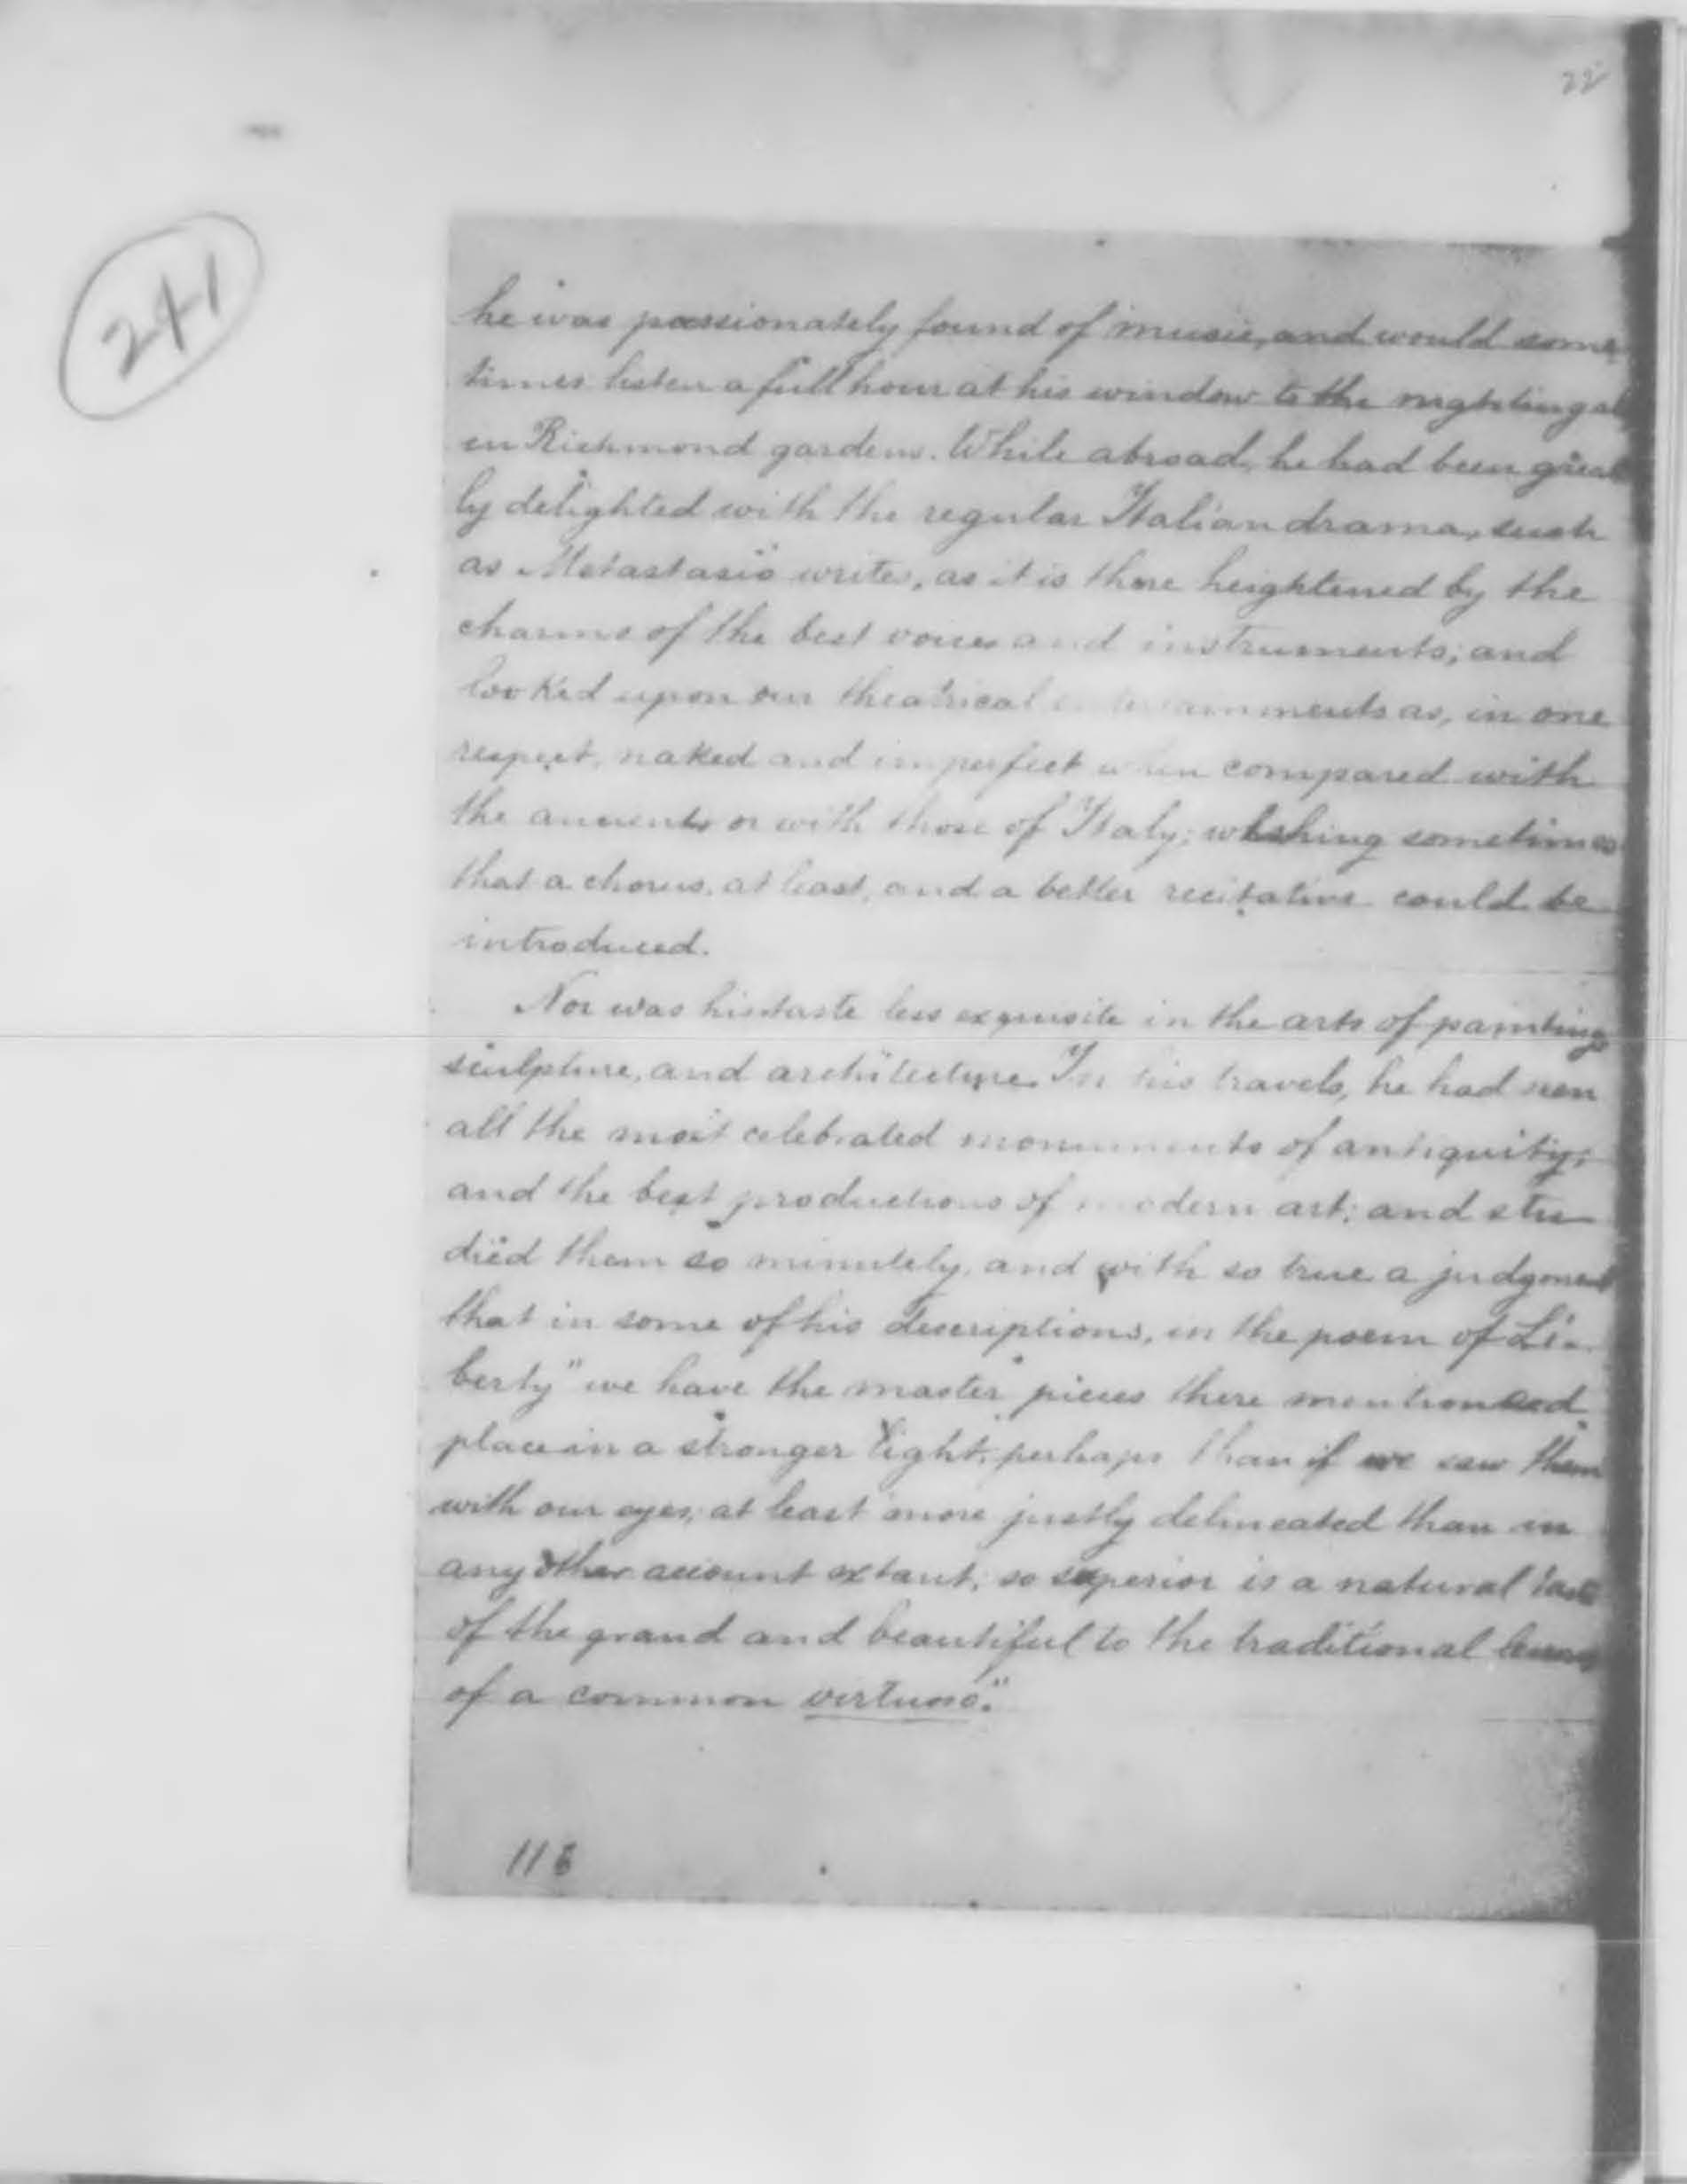 22
241
he was passionately found of music, and would some-
times listen a full hour at his window to the nightingale
in Richmond gardens. While abroad, he had been great
ly delighted with the regular Italian drama, such
as Metastasio writes, as it is there heightened by the
charms of the best voices and instruments; and
looked upon our theatrical entertainments as, in one
respect, naked and imperfect when compared with
the ancients or with those of Italy; wishing sometimes
that a chorus, at least, and a better recitative could be
introduced.
Nor was his taste less exquisite in the arts of painting
sculpture, and architecture. In his travels, he had seen
all the most celebrated monuments of antiquity;
and the best productions of modern art; and stu
died them so minutely, and with so true a judgment
that in some of his descriptions, in the poem of Li-
berty" we have the master pieces there mentioned
place in a stronger light, perhaps than if we saw them
with our eyes; at least more justly delineated than in
any other account extant; so superior is a natural taste
of the grand and beautiful to the traditional lessons
of a common virtuoso."